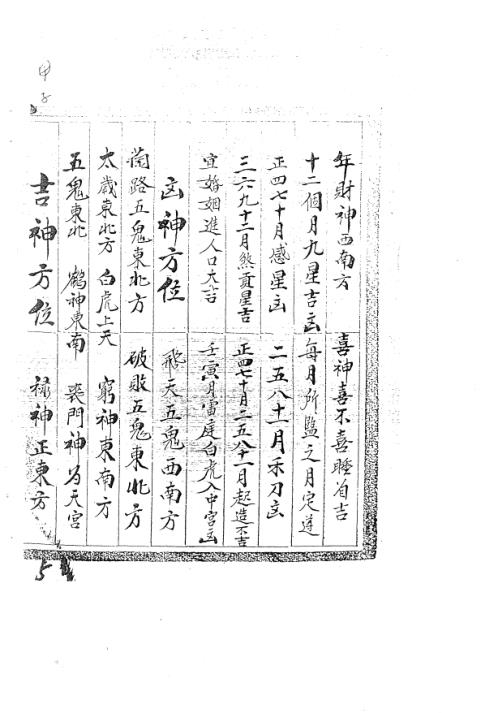 甲子
年財神西南方 喜神喜不喜睡自吉
十二個月九星吉凶每月所監之月定達
正四七十月惑星凶 二五八十一月禾刀凶
三六九十二月煞貢星吉 正四七十月二五八十一月起造不吉
宜婚姻進人口大吉 壬寅月寅庭白虎入中宮凶
凶神方位 飛天五鬼西南方
簡路五鬼東北方 破敗五鬼東北方
太歲東北方 白虎上天 窮神東南方
五鬼東北 鶴神東南 喪門神為天宮
吉神方位 祿神正東方
5